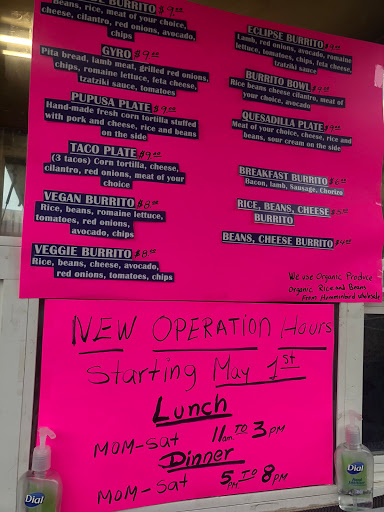 BURRITO $9.00
Beans, rice, meat of your choice,
cheese, cilantro, red onions, avocado,
chips
GYRO $9.00
Pita bread, lamb meat, grilled red onions,
chips, romaine lettuce, feta cheese,
tzatziki sauce, tomatoes
PUPUSA PLATE $9.00
Hand-made fresh corn tortilla stuffed
with pork and cheese, rice and beans
on the side
TACO PLATE $9.00
(3 tacos) Corn tortilla, cheese,
cilantro, red onions, meat of your
choice
VEGAN BURRITO $8.00
Rice, beans, romaine lettuce,
tomatoes, red onions,
avocado, chips
VEGGIE BURRITO $8.00
Rice, beans, cheese, avocado,
red onions, tomatoes, chips
ECLIPSE BURRITO
Lamb, red onions, avocado, romaine
lettuce, tomatoes, chips, feta cheese,
tratziki sauce
BURRITO BOWL $9.00
Rice beans cheese cilantro, meat of
your choice, avocado
QUESADILLA PLATE $9.00
Meat of your choice, cheese, rice and
beans, sour cream on the side
BREAKFAST BURRITO $6.00
Bacon, lamb, Sausage, Chorizo
RICE, BEANS, CHEESE $5.00
BURRITO
BEANS, CHEESE BURRITO $4.00
We use Organic Produce
Organic Rice and Beans
From Hummerbird wholesale
NEW OPERATION Hours
Starting May 1st
Lunch
MOM-Sat 11am TO 3PM
Dinner
MOM-Sat 5PM TO 8PM
Dial
Dial